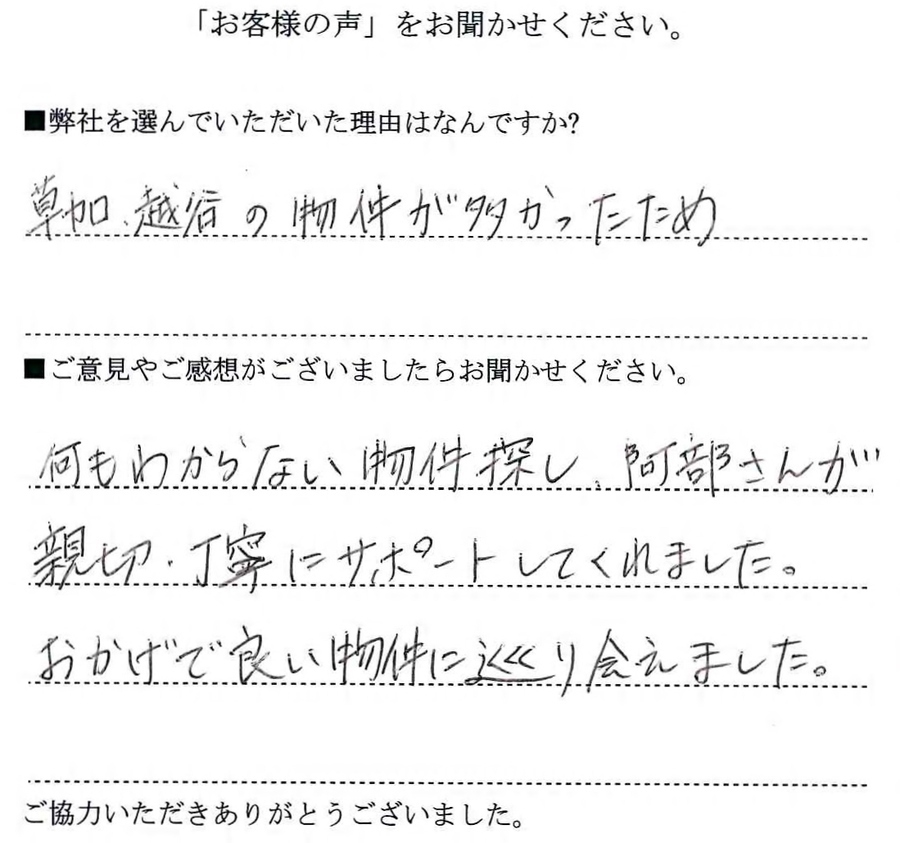 「お客様の声」をお聞かせください。
■弊社を選んでいただいた理由はなんですか?
草加、越谷の物件が多かったため
■ご意見やご感想がございましたらお聞かせください。
何もわからない物件探し、阿部さんが
親切・丁寧にサポートしてくれました。
おかげで良い物件に巡り会えました。
ご協力いただきありがとうございました。